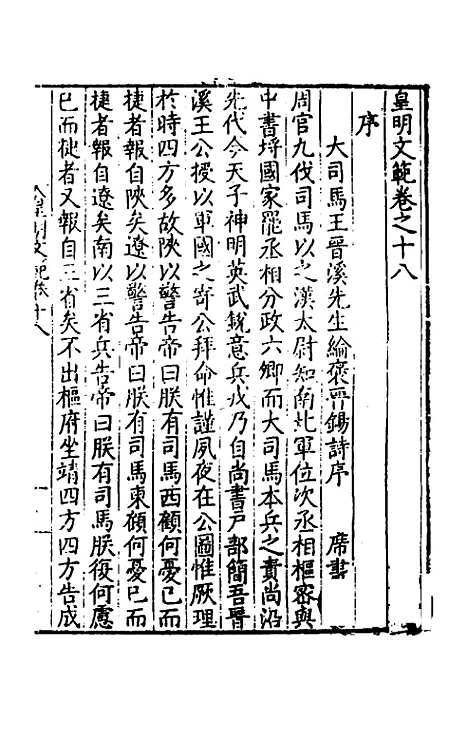 皇明文範卷之十八
序
大司馬王晉溪先生綸褒晉錫詩序 席書
周官九伐司馬以之漢太尉知南北軍位次丞相樞密與
中書埒國家罷丞相分政六卿而大司馬本兵之責尚沿
先代今天子神明英武銳意兵戎乃自尚書戸部簡吾晉
溪王公授以軍國之寄公拜命惟謹夙夜在公圖惟厥理
於時四方多故陝以警告帝曰朕有司馬西顧何憂已而
捷者報自陝矣遼以警告帝曰朕有司馬東顧何憂已而
捷者報自遼矣南以三省兵告帝曰朕有司馬朕復何慮
已而捷者又報自三省矣不出樞府坐靖四方四方告成
皇明文範卷十八